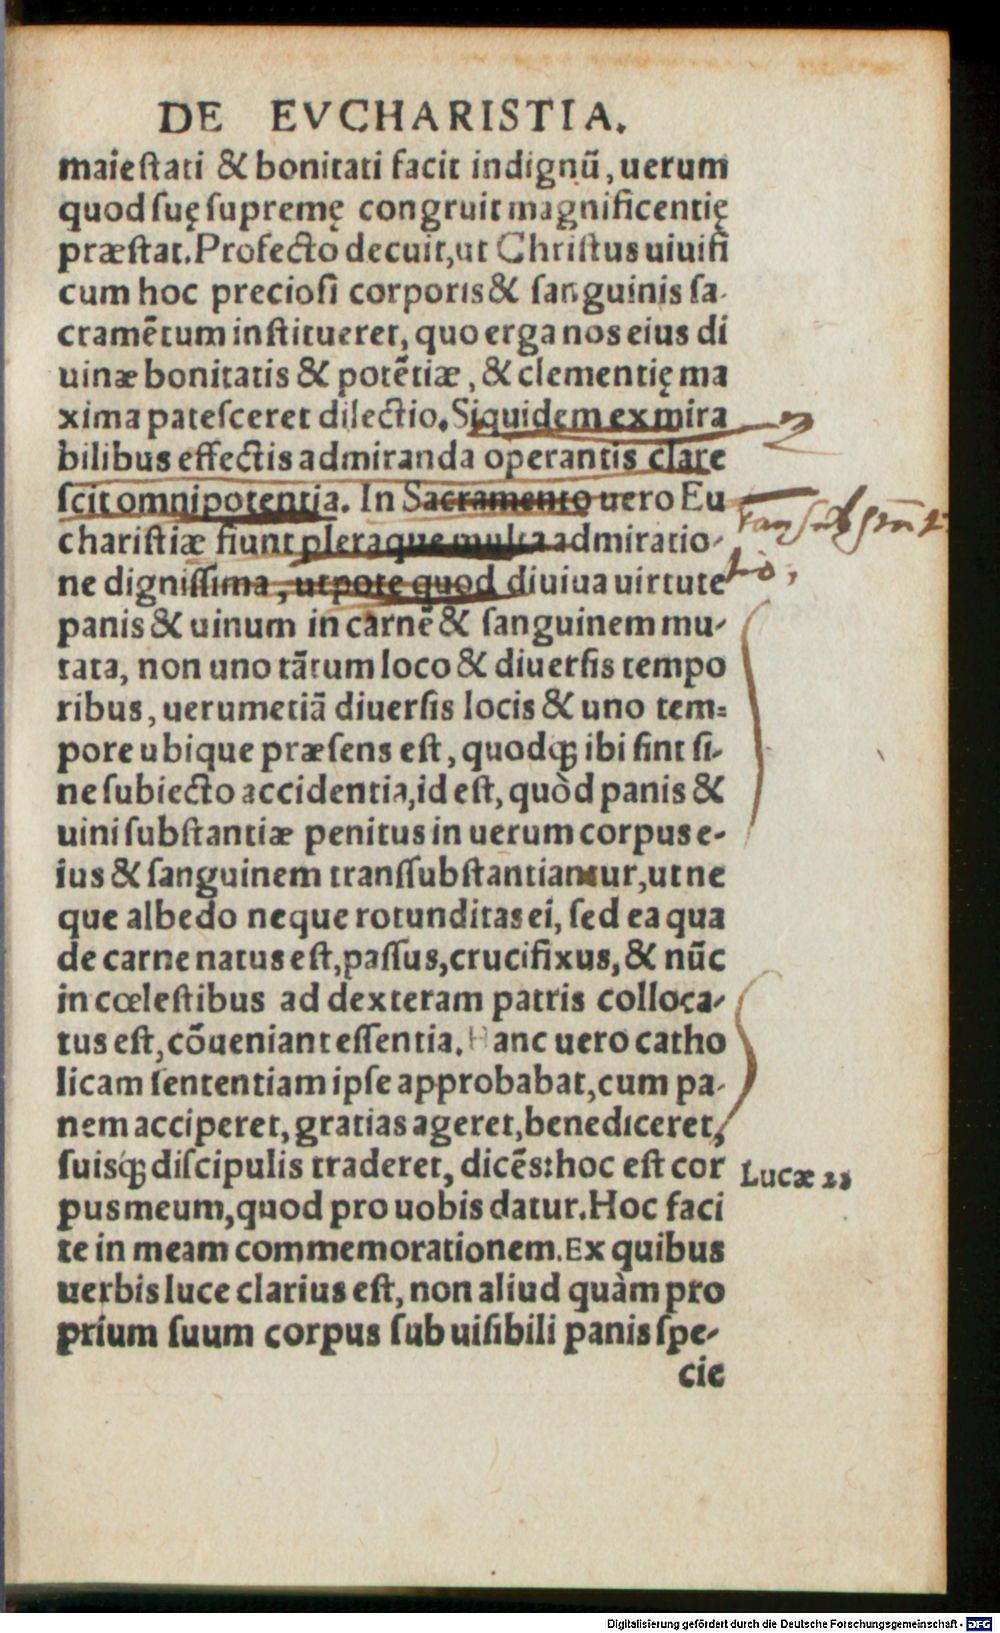 DE EVCHARISTIA.
maieſtati & bonitati facit indignũ, uerum
quod ſuę ſupremę congruit magnificentię
præſtat. Profecto decuit, ut Chriſtus uiuifi
cum hoc precioſi corporis & ſanguinis ſa-
cramẽtum inſtitueret, quo erga nos eius di
uinæ bonitatis & potẽtiæ, & clementię ma
xima pateſceret dilectio. Siquidem ex mira
bilibus effectis admiranda operantis clare
ſcit omnipotentia. In Sacramento uero Eu
chariſtiæ fiunt pleraque multa admiratio-
ne digniſſima, utpote quod diuiua uirtute
tranſubſtãt
tio,
panis & uinum in carnẽ & ſanguinem mu-
tata, non uno tãtum loco & diuerſis tempo
ribus, uerumetiã diuerſis locis & uno tem=
pore ubique præſens eſt, quodq; ibi ſint ſi-
ne ſubiecto accidentia, id eſt, quòd panis &
uini ſubſtantiæ penitus in uerum corpus e-
ius & ſanguinem transſubſtantiantur, ut ne
que albedo neque rotunditas ei, ſed ea qua
de carne natus eſt, paſſus, crucifixus, & nũc
in cœleſtibus ad dexteram patris colloca-
tus eſt, cõueniant eſſentia. Hanc uero catho
licam ſententiam ipſe approbabat, cum pa-
nem acciperet, gratias ageret, benediceret,
ſuisq; diſcipulis traderet, dicẽs: hoc eſt cor
Lucæ 22
pus meum, quod pro uobis datur. Hoc faci
te in meam commemorationem. Ex quibus
uerbis luce clarius eſt, non aliud quàm pro
prium ſuum corpus ſub uiſibili panis ſpe-
cie
Digitalisierung gefördert durch die Deutsche Forschungsgemeinschaft - DFG